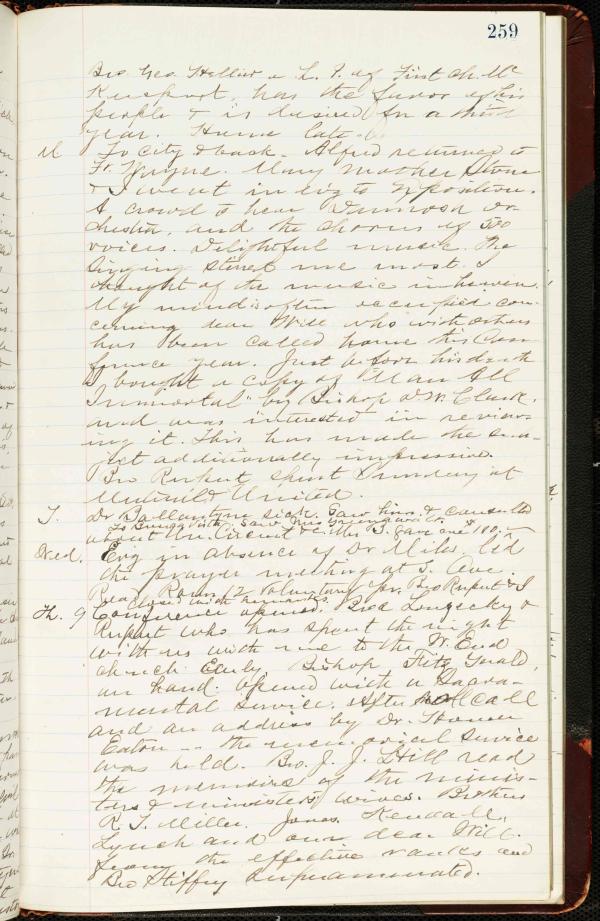 259
Bro. Geo. Hellier a L. P. of First Ch. Mc
Keesport, has the favor of his
people & is desired for a third
year. Home late.
M To city & back. Alfred returned to
Ft. Wayne. Mary mother
& I went in evg to Exposition.
A crowd to hear Damrosch Or-
chestra, and the chorus of 500
voices. Delightful music. The
singing stirred me most. I
thought of the music in heaven.
My mind is often occupied con-
cerning dear Will who with others
has been called home this Con-
ference year. Just before his death
I bought a copy of "Man All
Immortal" by Bishop D. W. Clark.
and was interested in review-
ing it. This has made the sub-
ject additionally impressive.
Bro Rupert spent Sunday at
United.
T. Dr Ballantyne sick. Saw him & consulted
to Buena Vista. Saw Mrs
about Un. Circuit &c. Mr. B. gave one $100.
Wed. Evg in absence of Dr Miles, led
the prayer meeting at S. Ave.
Read Rom. 12. Voluntary pr. Bro Rupert & I
closed with remarks.
Th. 9 Conference opened. Bros &
Rupert who has spent the night
with us with me to the W. End
church Early. Bishop Fitz Gerald,
on hand. Opened with a Sacra-
mental service. After roll call
and an address by Dr. Homer
Eaton -- the memorial service
was held. Bro. J. J. Hill read
the memoirs of the minis-
ters & ministers' wives. Brothers
R. T. Miller, Jones, Kendall,
Lynch and our dear Will.
from the effective ranks and
Bro Stiffey Superannuated.